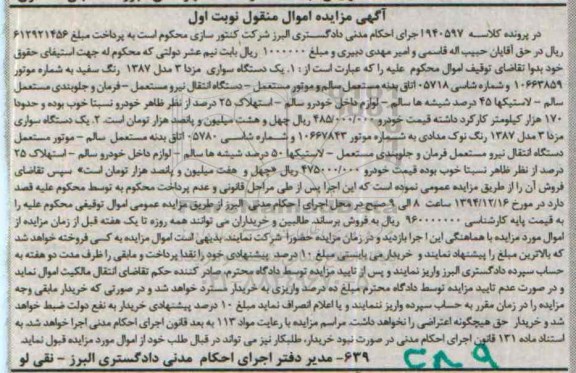 آگهی مزایده اموال منقول نوبت اول
در پرونده کلاسه ۹۴۰۵۹۷ اجرای احکام مدنی دادگستری البرز شرکت کنتور سازی محکوم است به پرداخت مبلغ ۶۱۲۹۲۱۴۵۶
ریال در حق آقایان حبیب اله قاسمی و امیر مهدی دبیری و مبلغ ۱۰۰۰۰۰۰ ریال بابت نیم عشر دولتی که محکوم له جهت استیفای حقوق
خود بدوا تقاضای توقیف اموال محکوم علیه را که عبارت است از: ۱. یک دستگاه سواری مزدا ۳ مدل ۱۳۸۷ رنگ سفید به شماره موتور
۱۰۶۶۳۸۵۹ و شماره شاسی ۰۵۷۱۸ اتاق بدنه مستعمل سالم و موتور مستعمل - دستگاه انتقال نیرو مستعمل - فرمان و جلوبندی مستعمل
سالم - لاستیکها ۴۵ درصد شیشه ها سالم - لوازم داخل خودرو سالم - استهلاک ۲۵ درصد از نظر ظاهر خودرو نسبتا خوب بوده و حدودا
۱۷۰ هزار کیلومتر کارکرد داشته قیمت خودرو ۴۸۵/۰۰۰/۰۰۰ ریال چهل و هشت میلیون و پانصد هزار تومان است. ۲. یک دستگاه سواری
مزدا ۳ مدل ۱۳۸۷ رنگ نوک مدادی به شماره موتور ۱۰۶۶۷۸۴۳ و شماره شاسی ۰۵۷۸۰ اتاق بدنه مستعمل سالم - موتور مستعمل
دستگاه انتقال نیرو مستعمل فرمان و جلوبندی مستعمل - لاستیکها ۵۰ درصد شیشه ها سالم - لوازم داخل خودرو سالم - استهلاک ۲۵
درصد از نظر ظاهر نسبتا خوب بوده قیمت خودرو ۴۷۵۰۰۰/۰۰۰ ریال «چهل و هفت میلیون و پانصد هزار تومان است» سپس تقاضای
فروش آن را از طریق مزایده عمومی نموده است که این اجرا پس از طی مراحل قانونی و عدم پرداخت محکوم به توسط محکوم علیه قصد
دارد در مورخ ۱۳۹۴/۱۲/۱۶ ساعت ۸ الی ۹ صبح در محل اجرای احکام مدنی البرز از طریق مزایده عمومی اموال توقیفی محکوم علیه را
به قیمت پایه کارشناسی ۹۶۰۰۰۰۰۰۰ ریال به فروش برساند. طالبین و خریداران می توانند همه روزه تا یک هفته قبل از زمان مزایده از
اموال مورد مزایده با هماهنگی این اجرا بازدید و در زمان مزایده حضورا شرکت نمایند. بدیهی است اموال مزایده به کسی فروخته خواهد شد
که بالاترین مبلغ را پیشنهاد نمایند و خریدار می بایستی مبلغ ۱۰ درصد پیشنهادی خود را نقدا پرداخت و مابقی را ظرف مدت دو هفته به
حساب سپرده دادگستری البرز واریز نمایند و پس از تایید مزایده توسط دادگاه محترم صادر کننده حکم تقاضای انتقال مالکیت اموال نماید
و در صورت عدم تایید مزایده توسط دادگاه محترم مبلغ ده درصد واریزی به خریدار مسترد خواهد شد و در صورتی که خریدار مابقی وجه
مزایده را در زمان مقرر به حساب سپرده واریز ننمایند و یا اعلام انصراف نماید مبلغ ۱۰ درصد پیشنهادی خریدار به نفع دولت ضبط خواهد
شد و خریدار حق هیچگونه اعتراضی را نخواهد داشت. مراسم مزایده با رعایت مواد ۱۱۳ به بعد قانون اجرای احکام مدنی اجرا خواهد شد. به
استناد ماده ۱۳۱ قانون اجرای احکام مدنی در صورت نبود خریدار، طلبکار نیز می تواند در قبال طلب خود از اموال مورد مزایده قبول نماید.
۶۳۹- مدیر دفتر اجرای احکام مدنی دادگستری البرز - نقی لو